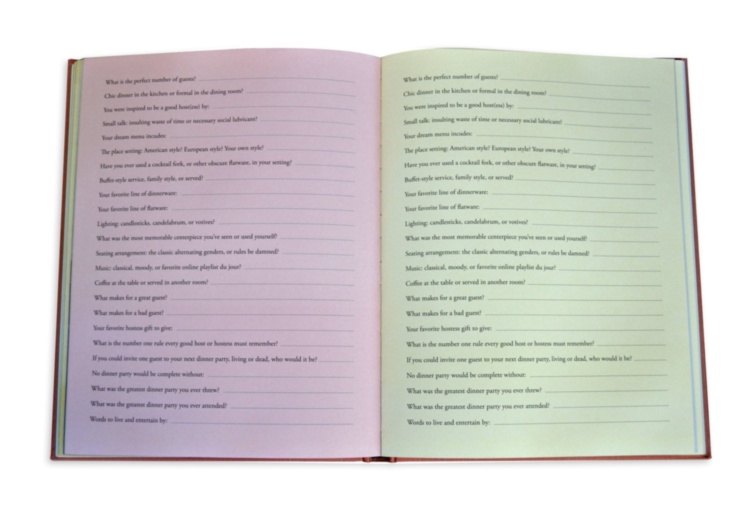 What is the perfect number of guests?
Chic dinner in the kitchen or formal in the dining room?
You were inspired to be a good host(ess) by:
Small talk: insulting waste of time or necessary social lubricant?
Your dream menu incudes:
The place setting: American style? European style? Your own style?
Have you ever used a cocktail fork, or other obscure flatware, in your setting?
Buffet-style service, family style, or served?
Your favorite line of dinnerware:
Your favorite line of flatware:
Lighting: candlesticks, candelabrum, or votives?
What was the most memorable centerpiece you've seen or used yourself?
Seating arrangement: the classic alternating genders, or rules be damned?
Music: classical, moody, or favorite online playlist du jour?
Coffee at the table or served in another room?
What makes for a great guest?
What makes for a bad guest?
Your favorite hostess gift to give:
What is the number one rule every good host or hostess must remember?
If you could invite one guest to your next dinner party, living or dead, who would it be?
No dinner party would be complete without:
What was the greatest dinner party you ever threw?
What was the greatest dinner party you ever attended?
Words to live and entertain by:
What is the perfect number of guests?
Chic dinner in the kitchen or formal in the dining room?
You were inspired to be a good host(ess) by:
Small talk: insulting waste of time or necessary social lubricant?
Your dream menu incudes:
The place setting: American style? European style? Your own style?
Have you ever used a cocktail fork, or other obscure flatware, in your setting?
Buffet-style service, family style, or served?
Your favorite line of dinnerware:
Your favorite line of flatware:
Lighting: candlesticks, candelabrum, or votives?
What was the most memorable centerpiece you've seen or used yourself?
Seating arrangement: the classic alternating genders, or rules be damned?
Music: classical, moody, or favorite online playlist du jour?
Coffee at the table or served in another room?
What makes for a great guest?
What makes for a bad guest?
Your favorite hostess gift to give:
What is the number one rule every good host or hostess must remember?
If you could invite one guest to your next dinner party, living or dead, who would it be?
No dinner party would be complete without:
What was the greatest dinner party you ever threw?
What was the greatest dinner party you ever attended?
Words to live and entertain by: